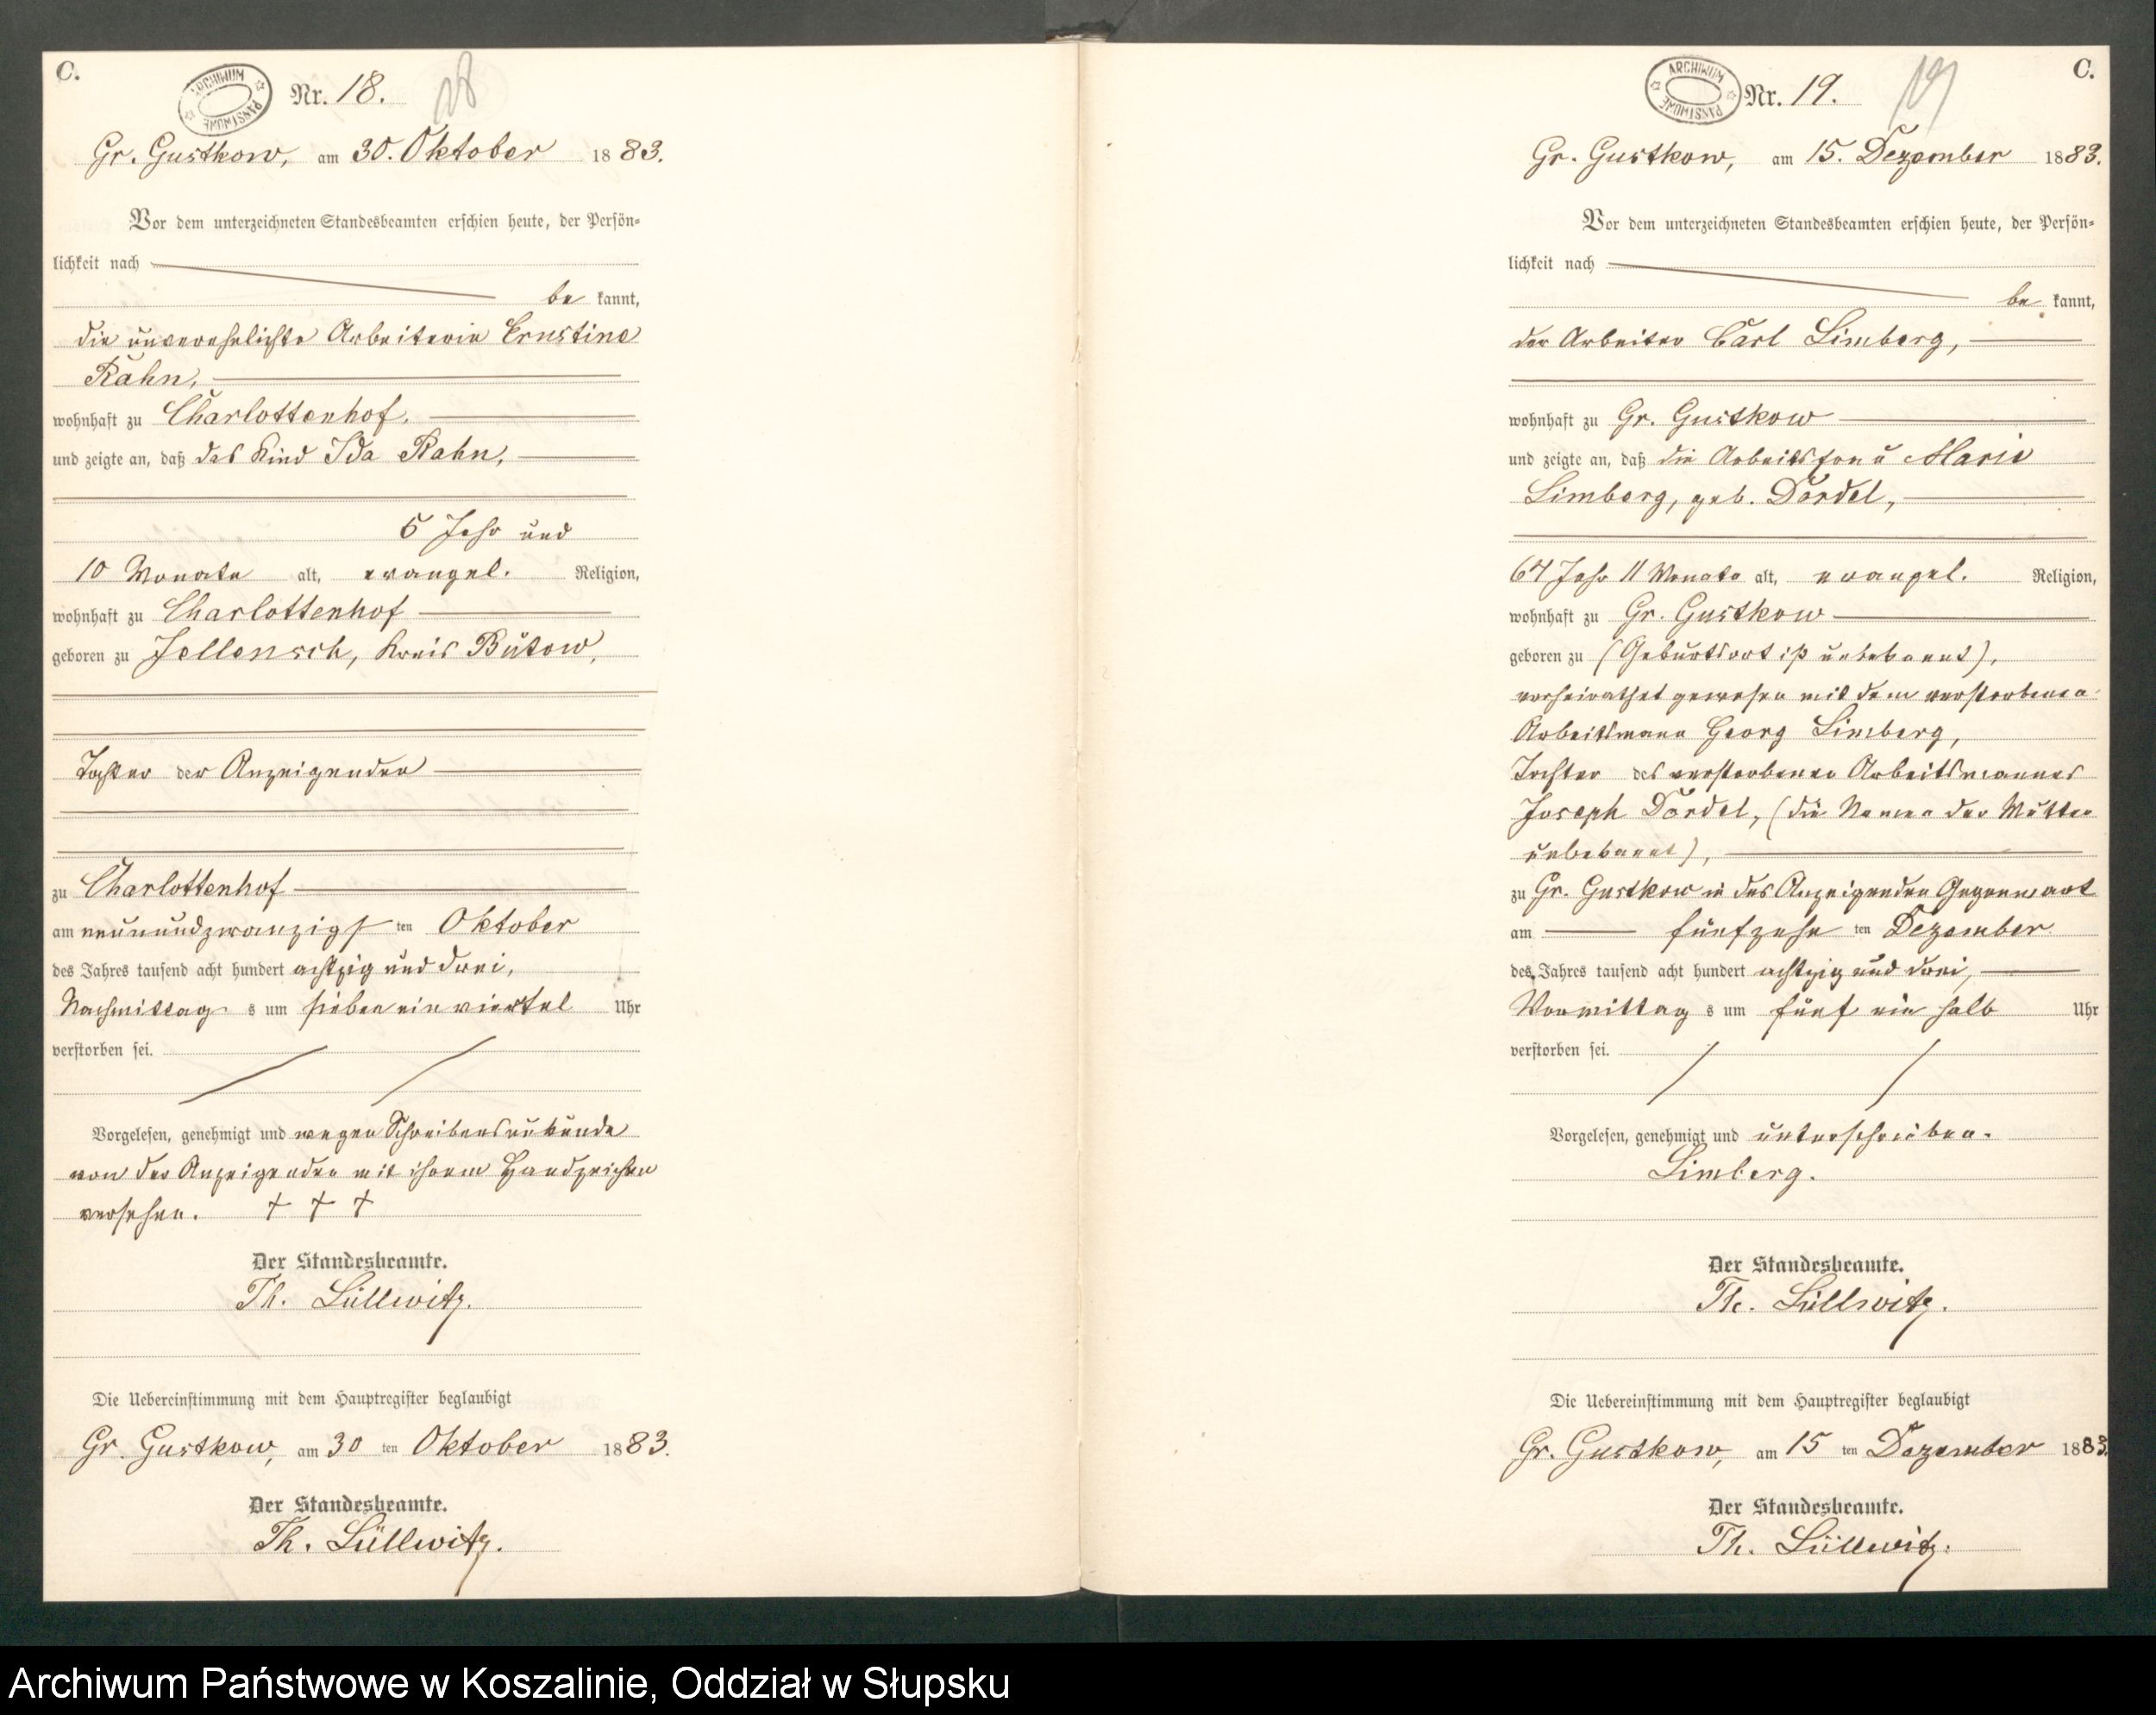 C.
ARCHIWUM PAŃSTWOWE
Nr. 18.
18
Gr. Gustkow, am 30. Oktober 1883.
Vor dem unterzeichneten Standesbeamten erschien heute, der Persön-
lichkeit nach
be kannt,
die unverehelichte Arbeiterin Ernstine
Rahn,
wohnhaft zu Charlottenhof,
und zeigte an, daß das Kind Ida Rahn,
5 Jahr und
10 Monate alt, evangel. Religion,
wohnhaft zu Charlottenhof
geboren zu Jellensch, Kreis Bütow,
Tochter der Anzeigenden
zu Charlottenhof
am neunundzwanzigs ten Oktober
des Jahres tausend acht hundert achtzig und drei,
Nachmittag s um sieben ein viertel Uhr
verstorben sei.
Vorgelesen, genehmigt und wegen Schreibensunkunde
von der Anzeigenden mit ihrem Handzeichen
versehen. † † †
Der Standesbeamte.
Th. Lüllwitz.
Die Uebereinstimmung mit dem Hauptregister beglaubigt
Gr. Gustkow, am 30 ten Oktober 1883.
Der Standesbeamte.
Th. Lüllwitz.
C.
ARCHIWUM PAŃSTWOWE
Nr. 19.
19
Gr. Gustkow, am 15. Dezember 1883.
Vor dem unterzeichneten Standesbeamten erschien heute, der Persön-
lichkeit nach
be kannt,
der Arbeiter Carl Limberg,
wohnhaft zu Gr. Gustkow
und zeigte an, daß die Arbeitsfrau Marie
Limberg, geb. Dördel,
64 Jahr 11 Monate alt, evangel. Religion,
wohnhaft zu Gr. Gustkow
geboren zu (Geburtsort ist unbekannt),
verheirathet gewesen mit dem verstorbenen
Arbeitsmann Georg Limberg,
Tochter des verstorbenen Arbeitsmannes
Joseph Dördel, (die Namen der Mutter
unbekannt),
zu Gr. Gustkow in des Anzeigenden Gegenwart
am fünfzehn ten Dezember
des Jahres tausend acht hundert achtzig und drei,
Vormittag s um fünf ein halb Uhr
verstorben sei.
Vorgelesen, genehmigt und unterschrieben.
Limberg.
Der Standesbeamte.
Th. Lüllwitz.
Die Uebereinstimmung mit dem Hauptregister beglaubigt
Gr. Gustkow, am 15 ten Dezember 1883.
Der Standesbeamte.
Th. Lüllwitz.
Archiwum Państwowe w Koszalinie, Oddział w Słupsku